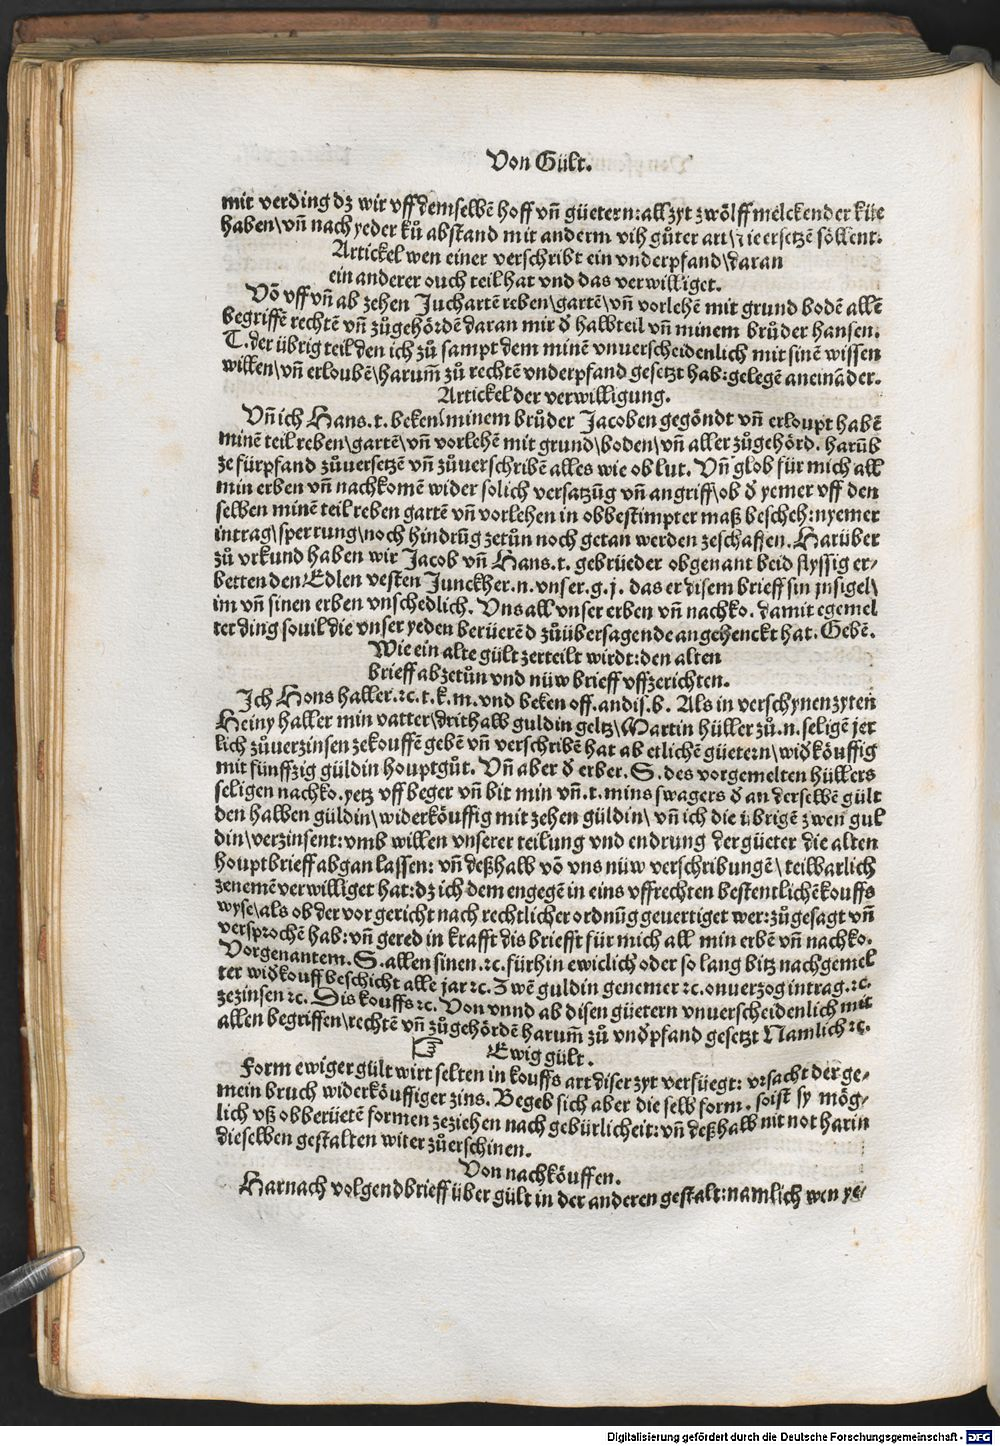 Von Gült.
mit verding dz wir vff demselbē hoff vn̄ güetern: all zyt zwölff melckender küe
haben\ vn̄ nach yeder ků abstand mit anderm vih gůter art\ ie ersetzē söllent.
Artickel wen einer verschribt ein vnderpfand\ daran
ein anderer ouch teil hat vnd das verwilliget.
Vō vff vn̄ ab zehen Juchartē reben\ gartē\ vn̄ vorlehē mit grund bodē allē
begriffē rechtē vn̄ zůgehördē daran mir d̄ halbteil vn̄ minem brůder hansen.
T. der übrig teil den ich zů sampt dem minē vnuerscheidenlich mit sinē wissen
willen\ vn̄ erloubē\ harum̄ zů rechtē vnderpfand gesetzt hab: gelegē aneinād er.
Artickel der verwilligung.
Vn̄ ich Hans. t. beken\ minem brůder Jacoben gegöndt vn̄ erloupt habē
minē teil reben\ gartē\ vn̄ vorlehē mit grund\ boden\ vn̄ aller zůgehörd. harūb
ze fürpfand zůuersetzē vn̄ zůuerschribē alles wie ob lut. Vn̄ glob für mich all
min erben vn̄ nachkomē wider solich versatzūg vn̄ angriff\ ob d̄ yemer vff den
selben minē teil reben gartē vn̄ vorlehen in obbestimpter maß bescheh: nyemer
intrag\ sperrung\ noch hindrūg zetůn noch getan werden zeschaffen. Harüber
zů vrkund haben wir Jacob vn̄ Hans. t. gebrüeder obgenant beid flyssig er-
betten den Edlen vesten Junckher. n. vnser. g. j. das er disem brieff sin jnsigel\
im vn̄ sinen erben vnschedlich. Vns all vnser erben vn̄ nachko. damit egemel
ter ding souil die vnser yeden berüerēd zůübersagende angehenckt hat. Gebē.
Wie ein alte gült zerteilt wirdt: den alten
brieff abzetůn vnd nüw brieff vffzerichten.
Ich Hons haller. ꝛc. t. k. m. vnd beken off. an dis. b. Als in verschynen zyten
Heiny haller min vatter\ drithalb guldin geltz\ Martin hüller zů. n. seligē jer
lich zůuerzinsen zekouffē gebē vn̄ verschribē hat ab etlichē güetern\ wid̄köuffig
mit fünffzig güldin houptgůt. Vn̄ aber d̄ erber. S. des vorgemelten hüllers
seligen nachko. yetz vff beger vn̄ bit min vn̄. t. mins swagers d̄ an derselbē gült
den halben güldin\ widerköuffig mit zehen güldin\ vn̄ ich die übrigē zwen gul
din\ verzinsent: vmb willen vnserer teilung vnd endrung der güeter die alten
houptbrieff abgan lassen: vn̄ deßhalb vō vns nüw verschribungē\ teilbarlich
zenemē verwilliget hat: dz ich dem engegē in eins vffrechten bestentlichē kouffs
wyse\ als ob der vor gericht nach rechtlicher ordnūg geuertiget wer: zůgesagt vn̄
versprochē hab: vn̄ gered in krafft dis briefft für mich all min erbē vn̄ nachko.
Vorgenantem. S. allen sinen. ꝛc. fürhin ewiclich oder so lang bitz nachgemel
ter wid̄kouff beschicht alle jar ꝛc. Zwē guldin genemer ꝛc. on verzog intrag. ꝛc.
zezinsen ꝛc. Dis kouffs ꝛc. Von vnnd ab disen güetern vnuerscheidenlich mit
allen begriffen\ rechtē vn̄ zůgehördē harum̄ zů vnd̄pfand gesetzt Namlich ꝛc.
☞ Ewig gült.
Form ewiger gült wirt selten in kouffs art diser zyt verfüegt: vrsacht der ge-
mein bruch widerköuffiger zins. Begeb sich aber die selb form. so ist sy mög-
lich vß obberüetē formen zeziehen nach gebürlicheit: vn̄ deßhalb nit not harin
dieselben gestalten witer zůerschinen.
Von nachköuffen.
Harnach volgend brieff über gült in der anderen gestalt: namlich wen ye-
Digitalisierung gefördert durch die Deutsche Forschungsgemeinschaft - DFG